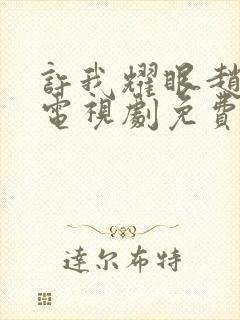 許我耀眼趙
電視劇免費
達尔布特